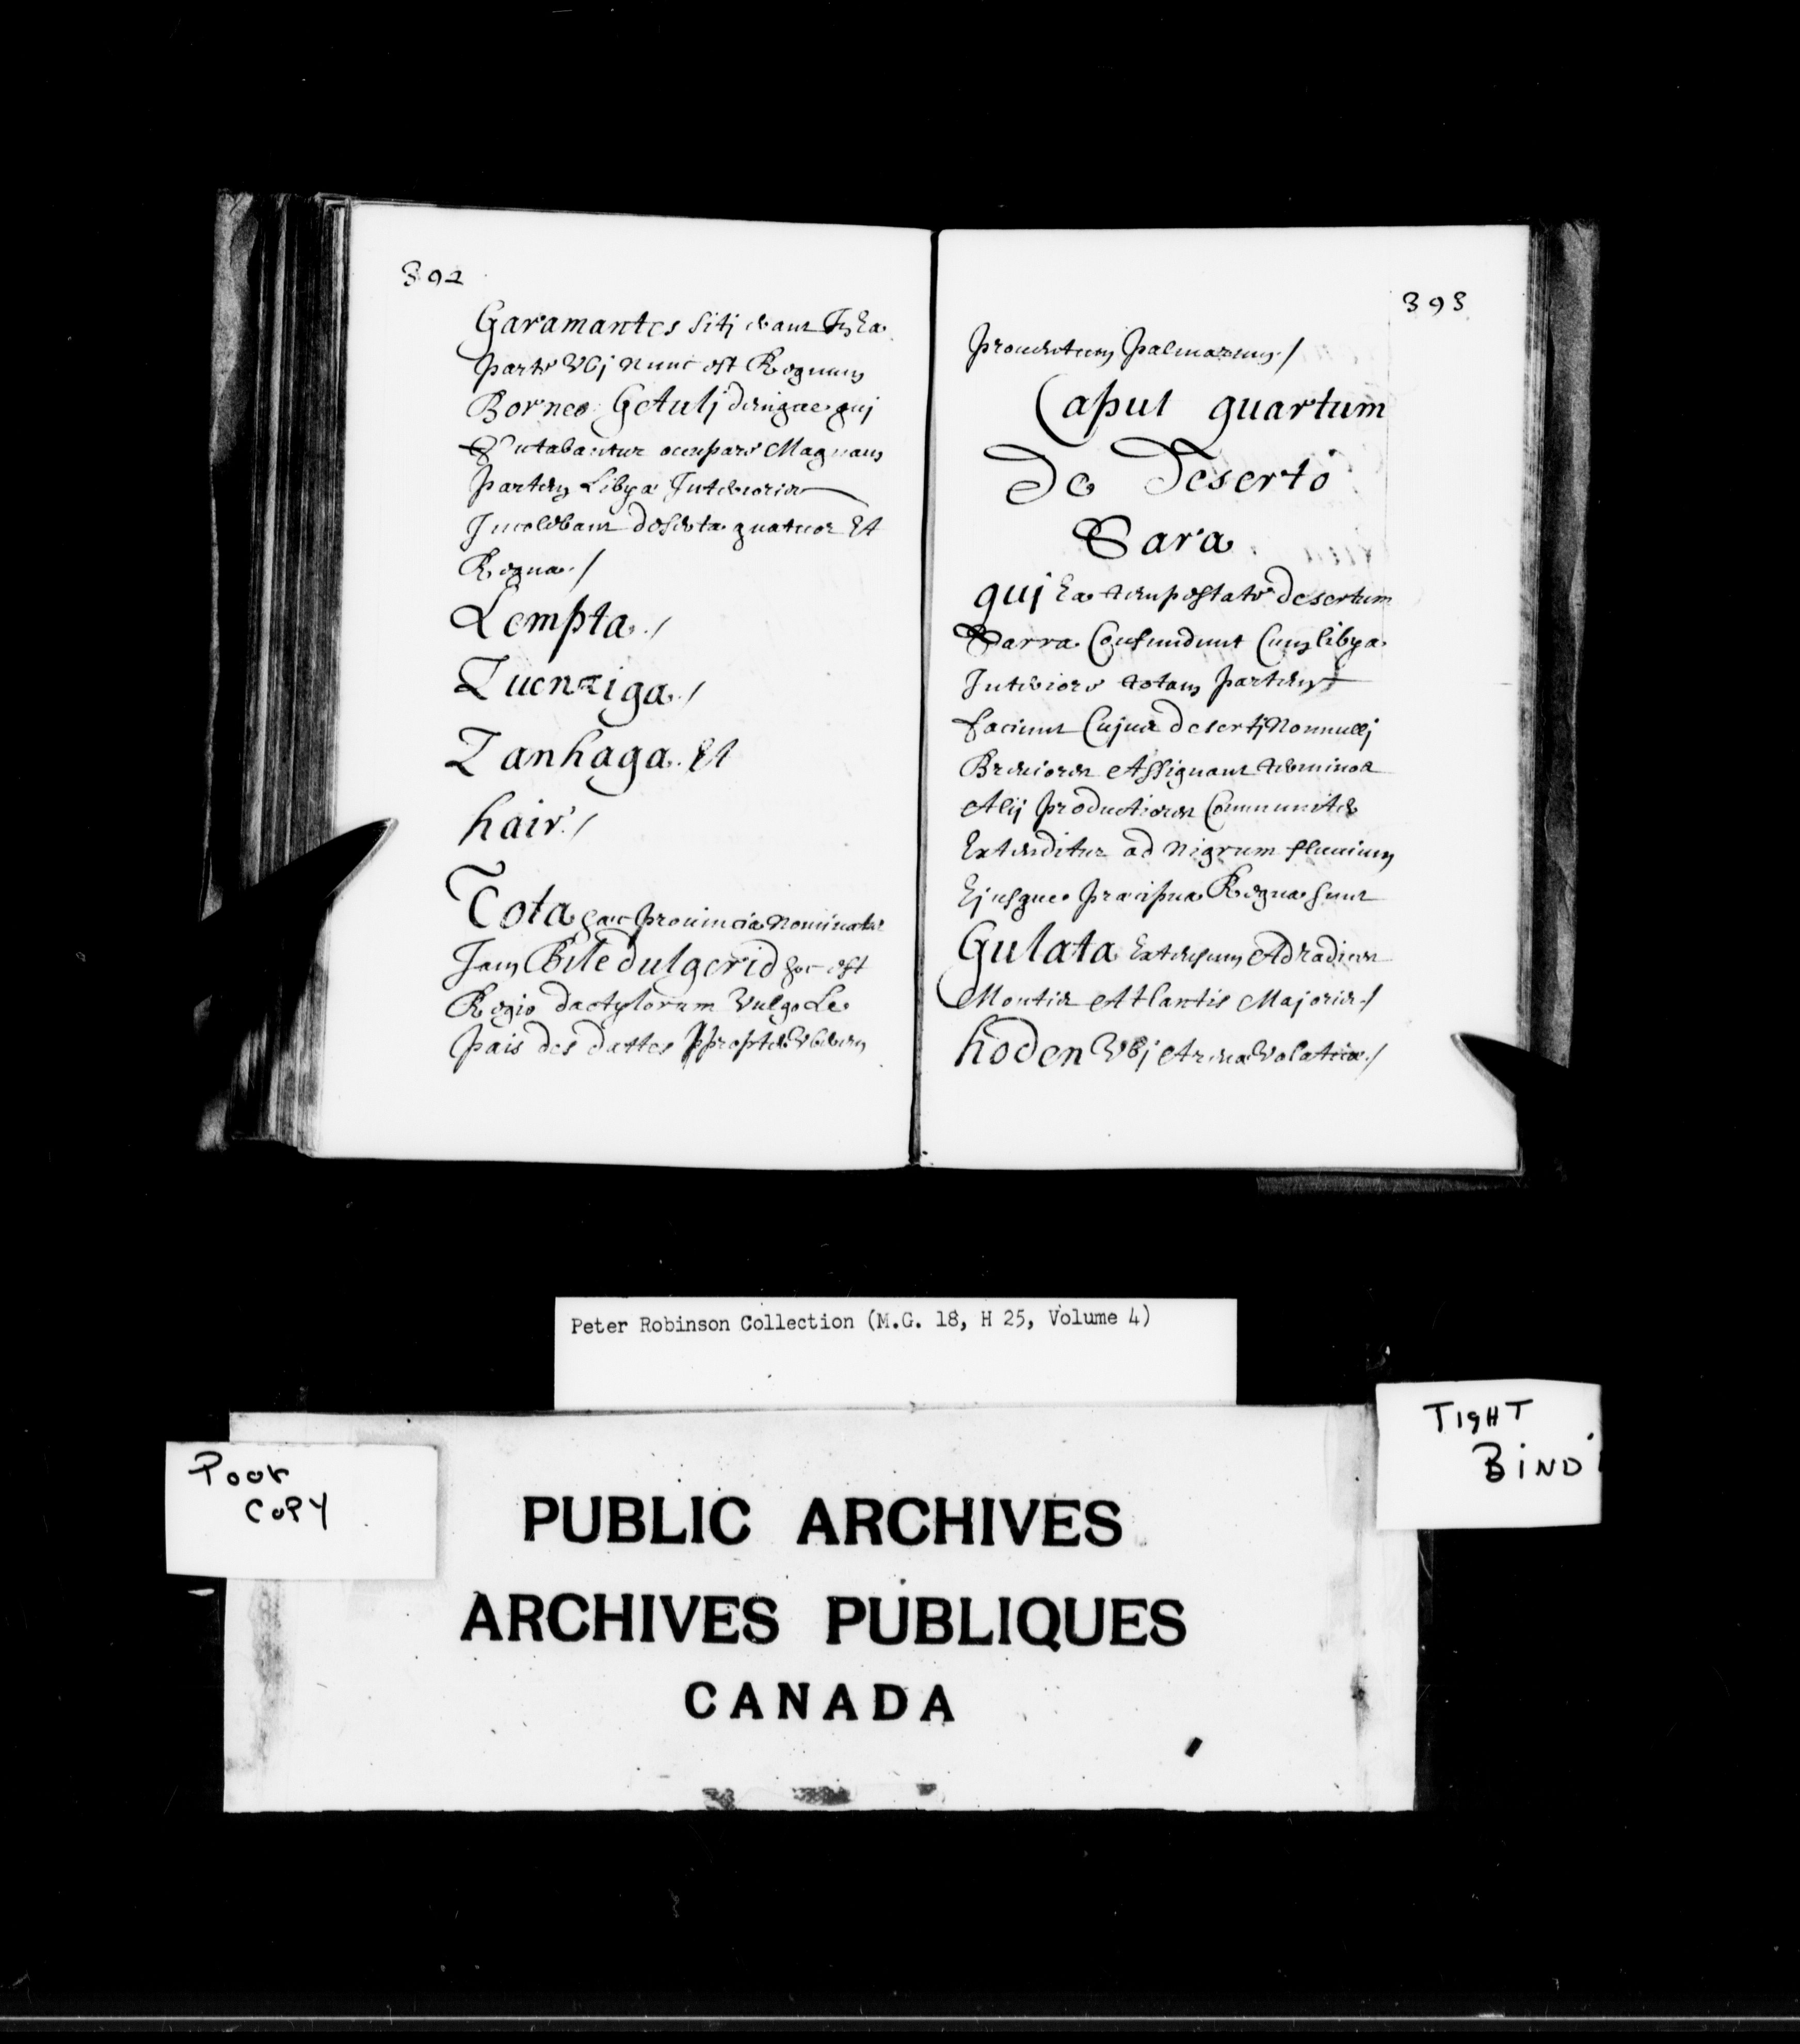 392
Garamantes Sitj erant In Ea
parte Vbj nunc est Regnum
Borneo Getulj denique quj
Putabantur occupare Magnam
partem Libya Interioris
Incolebant deserta quatuor Et
Regna /
Lempta /
Zuenziga /
Zanhaga Et
hair /
Tota haec prouincia Nominatur
Jam Biledulgerid hoc est
Regio dactylorum Vulgo Le
païs des dattes propter Vberem
393
prouentum palmarum /
Caput quartum
De Deserto
Sara
quj Ea tempestate desertum
Sarra Confundunt Cum libya
Interiore totam partem
faciunt Cujus desertj Nonnullj
Breuiores Assignant terminos
Alij productiores Communiter
Extenditur ad Nigrum fluuium
Ejusque praecipua Regna sunt
Gulata Extensum Ad radices
Montis Atlantis Majoris /
hoden Vbj Arena Volatica /
Peter Robinson Collection (M.G. 18, H 25, Volume 4)
TIGHT
BIND
Poor
COPY
PUBLIC ARCHIVES
ARCHIVES PUBLIQUES
CANADA